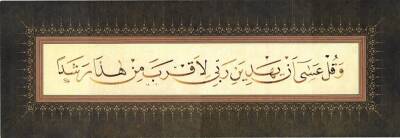 وَقُلْ عَسٰى اَنْ يَهْدِيَنِ رَبّ۪ى لِاَقْرَبَ مِنْ هٰذَا رَشَدًا